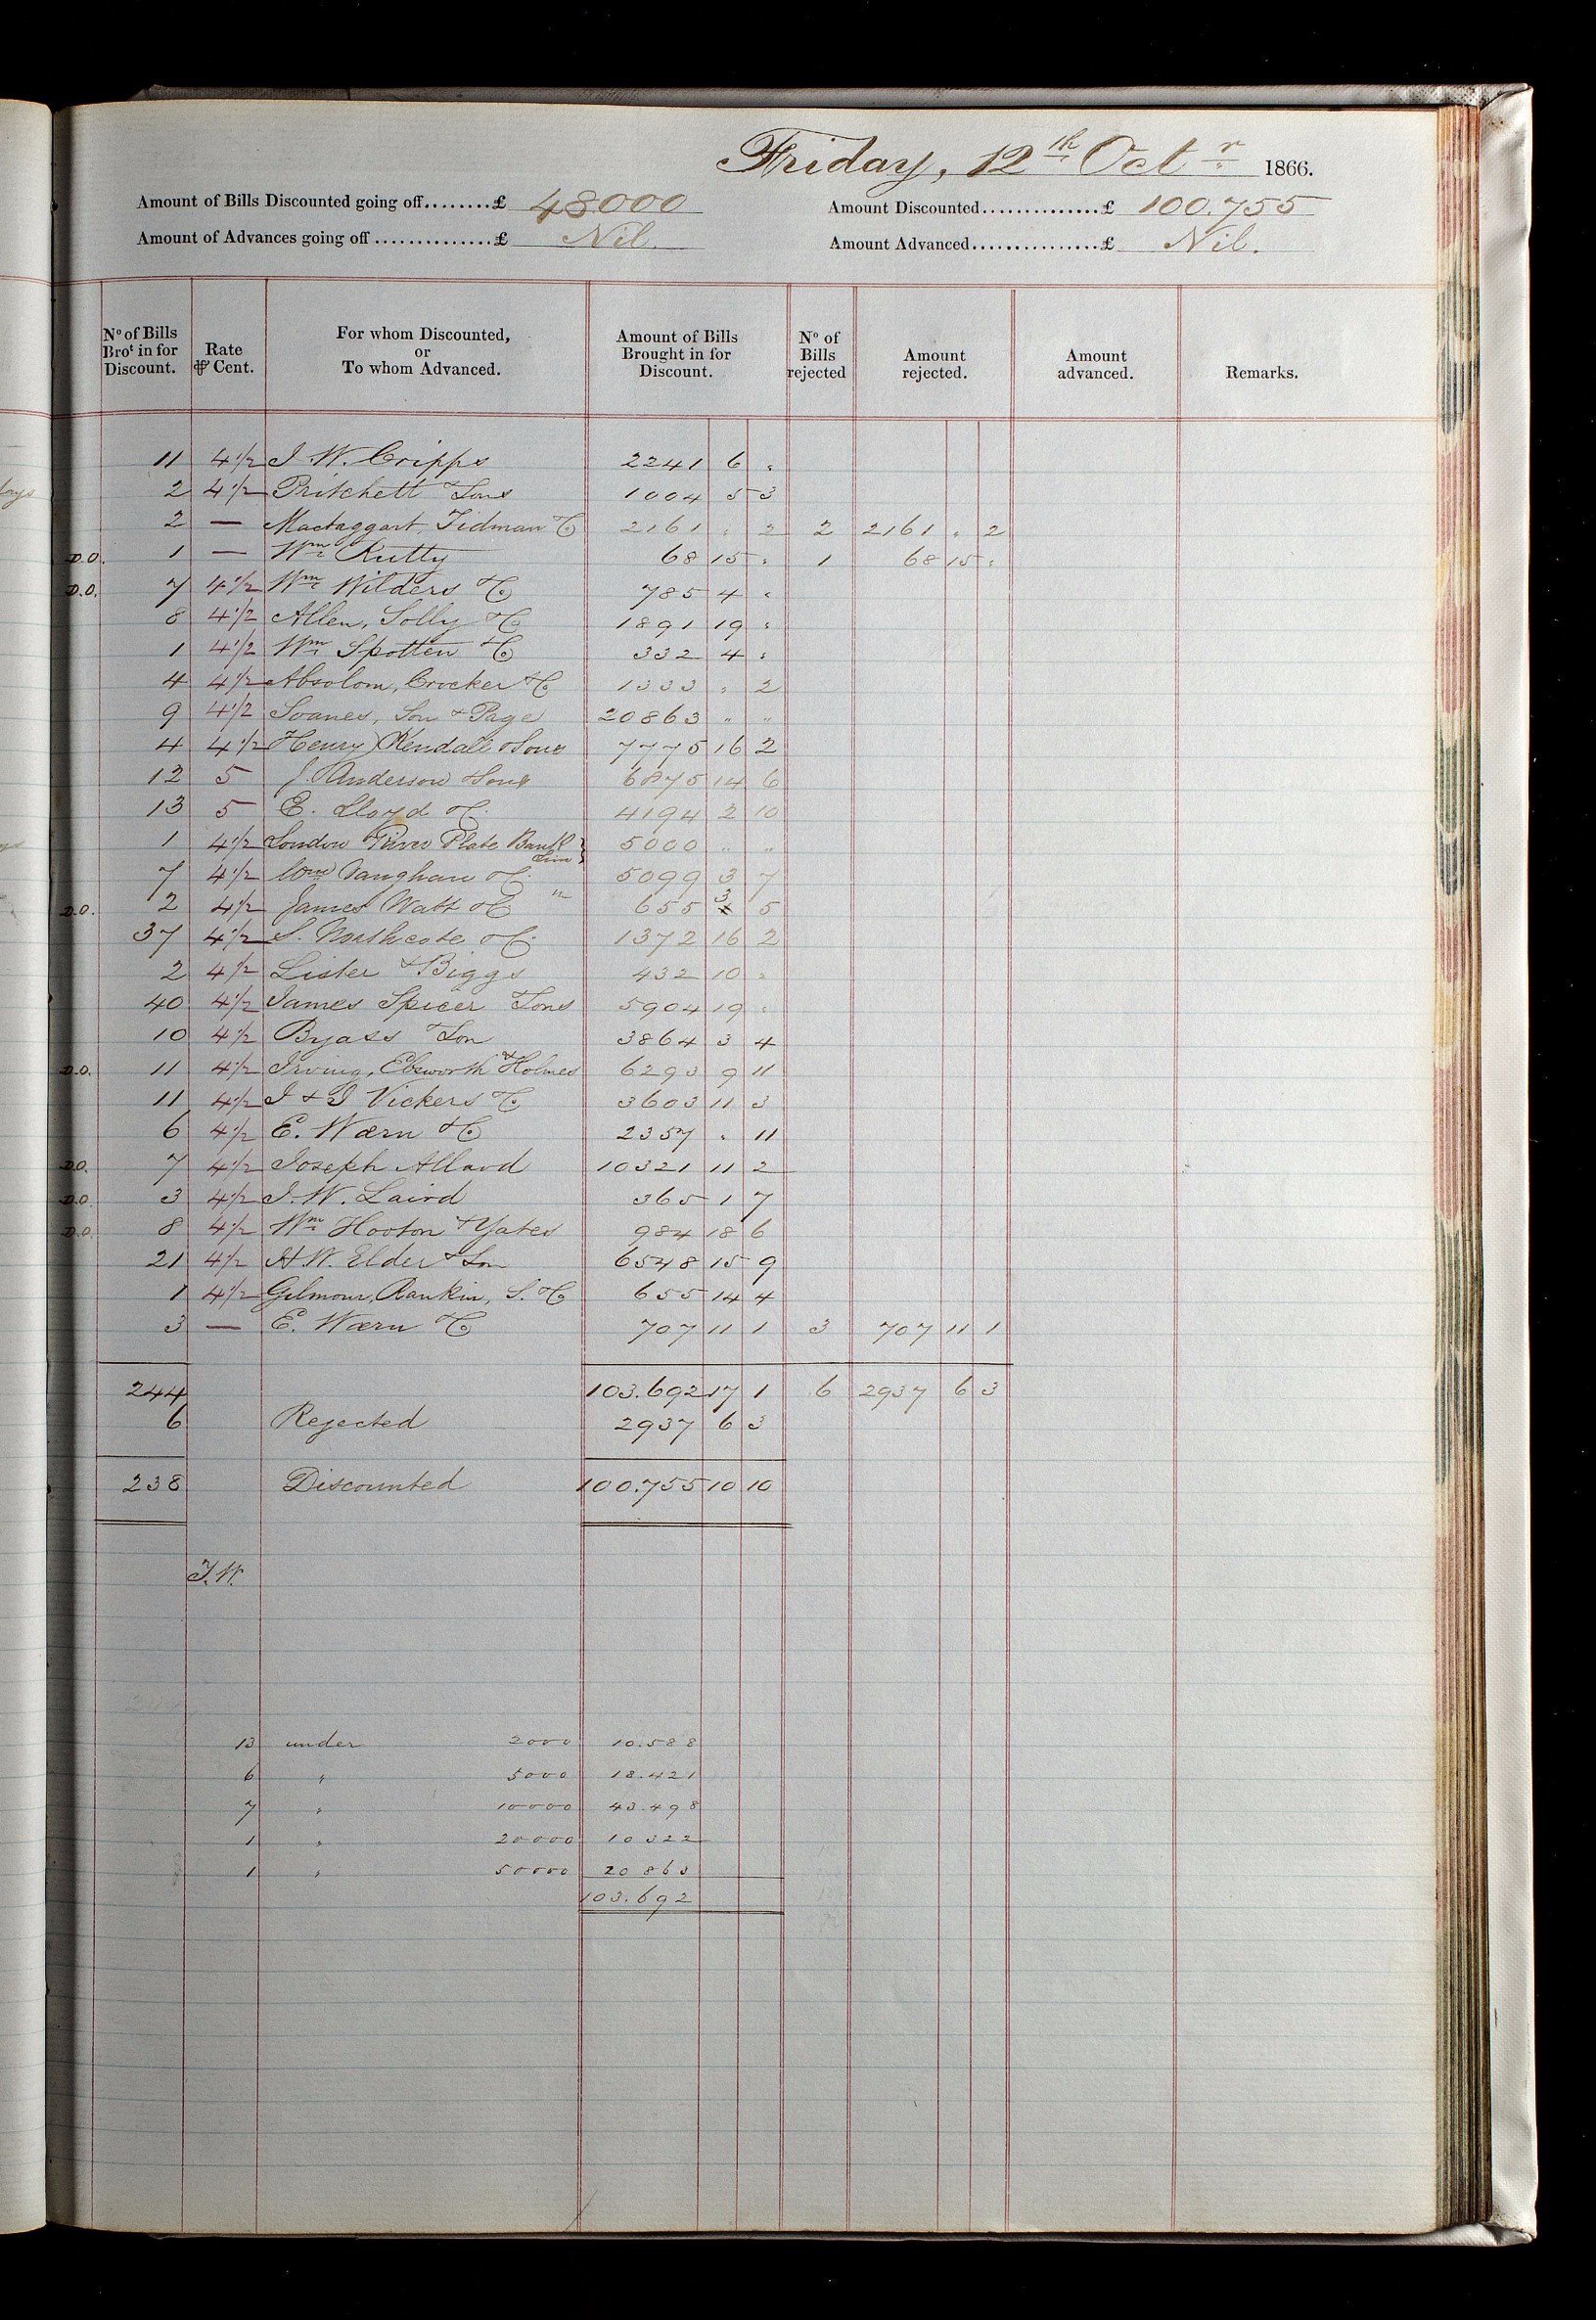 Friday, 12th Octr 1866.
Amount of Bills Discounted going off........£ 48000
Amount Discounted..............£ 100.755
Amount of Advances going off..............£ Nil.
Amount Advanced................£ Nil.
No of Bills Brot in for Discount. Rate ⅌ Cent. For whom Discounted, or To whom Advanced. Amount of Bills Brought in for Discount. No of Bills rejected Amount rejected. Amount advanced. Remarks.
11 4 1/2 J. W. Cripps 2241 6 "
2 4 1/2 Pritchett & Sons 1004 5 3
2 — Mactaggart, Tidman & Co 2161 " 2 2 2161 " 2
D.O. 1 — Wm Rutty 68 15 " 1 68 15 "
D.O. 7 4 1/2 Wm Wilders & Co 785 4 "
8 4 1/2 Allen, Solly & Co 1891 19 "
1 4 1/2 Wm Spotten & Co 332 4 "
4 4 1/2 Absolom, Crocker & Co 1333 " 2
9 4 1/2 Soanes, Son & Page 20863 " "
4 4 1/2 Henry Kendall & Sons 7775 16 2
12 5 J. Anderson & Sons 6875 14 6
13 5 E. Lloyd & Co 4194 2 10
1 4 1/2 London River Plate Bank 5000 " "
7 4 1/2 Wm Vaughan & Co 5099 3 7
D.O. 2 4 1/2 James Watt & Co " 655 3 5
37 4 1/2 S. Northcote & Co 1372 16 2
2 4 1/2 Lister & Biggs 432 10 "
40 4 1/2 James Spicer & Sons 5904 19 "
10 4 1/2 Byass & Son 3864 3 4
D.O. 11 4 1/2 Irving, Ebsworth & Holmes 6293 9 11
11 4 1/2 J & J Vickers & Co 3603 11 3
6 4 1/2 E. Wærn & Co 2357 " 11
D.O. 7 4 1/2 Joseph Allard 10321 11 2
D.O. 3 4 1/2 J. W. Laird 365 1 7
D.O. 8 4 1/2 Wm Hooton & Yates 984 18 6
21 4 1/2 H. W. Elder & Son 6548 15 9
1 4 1/2 Gilmour, Rankin, S. & Co 655 14 4
3 — E. Wærn & Co 707 11 1 3 707 11 1
244 103.692 17 1 6 2937 6 3
6 Rejected 2937 6 3
238 Discounted 100.755 10 10
T.W.
13 under 2000 10.588
6 " 5000 18.421
7 " 10000 43.498
1 " 20000 10322
1 " 50000 20863
103.692